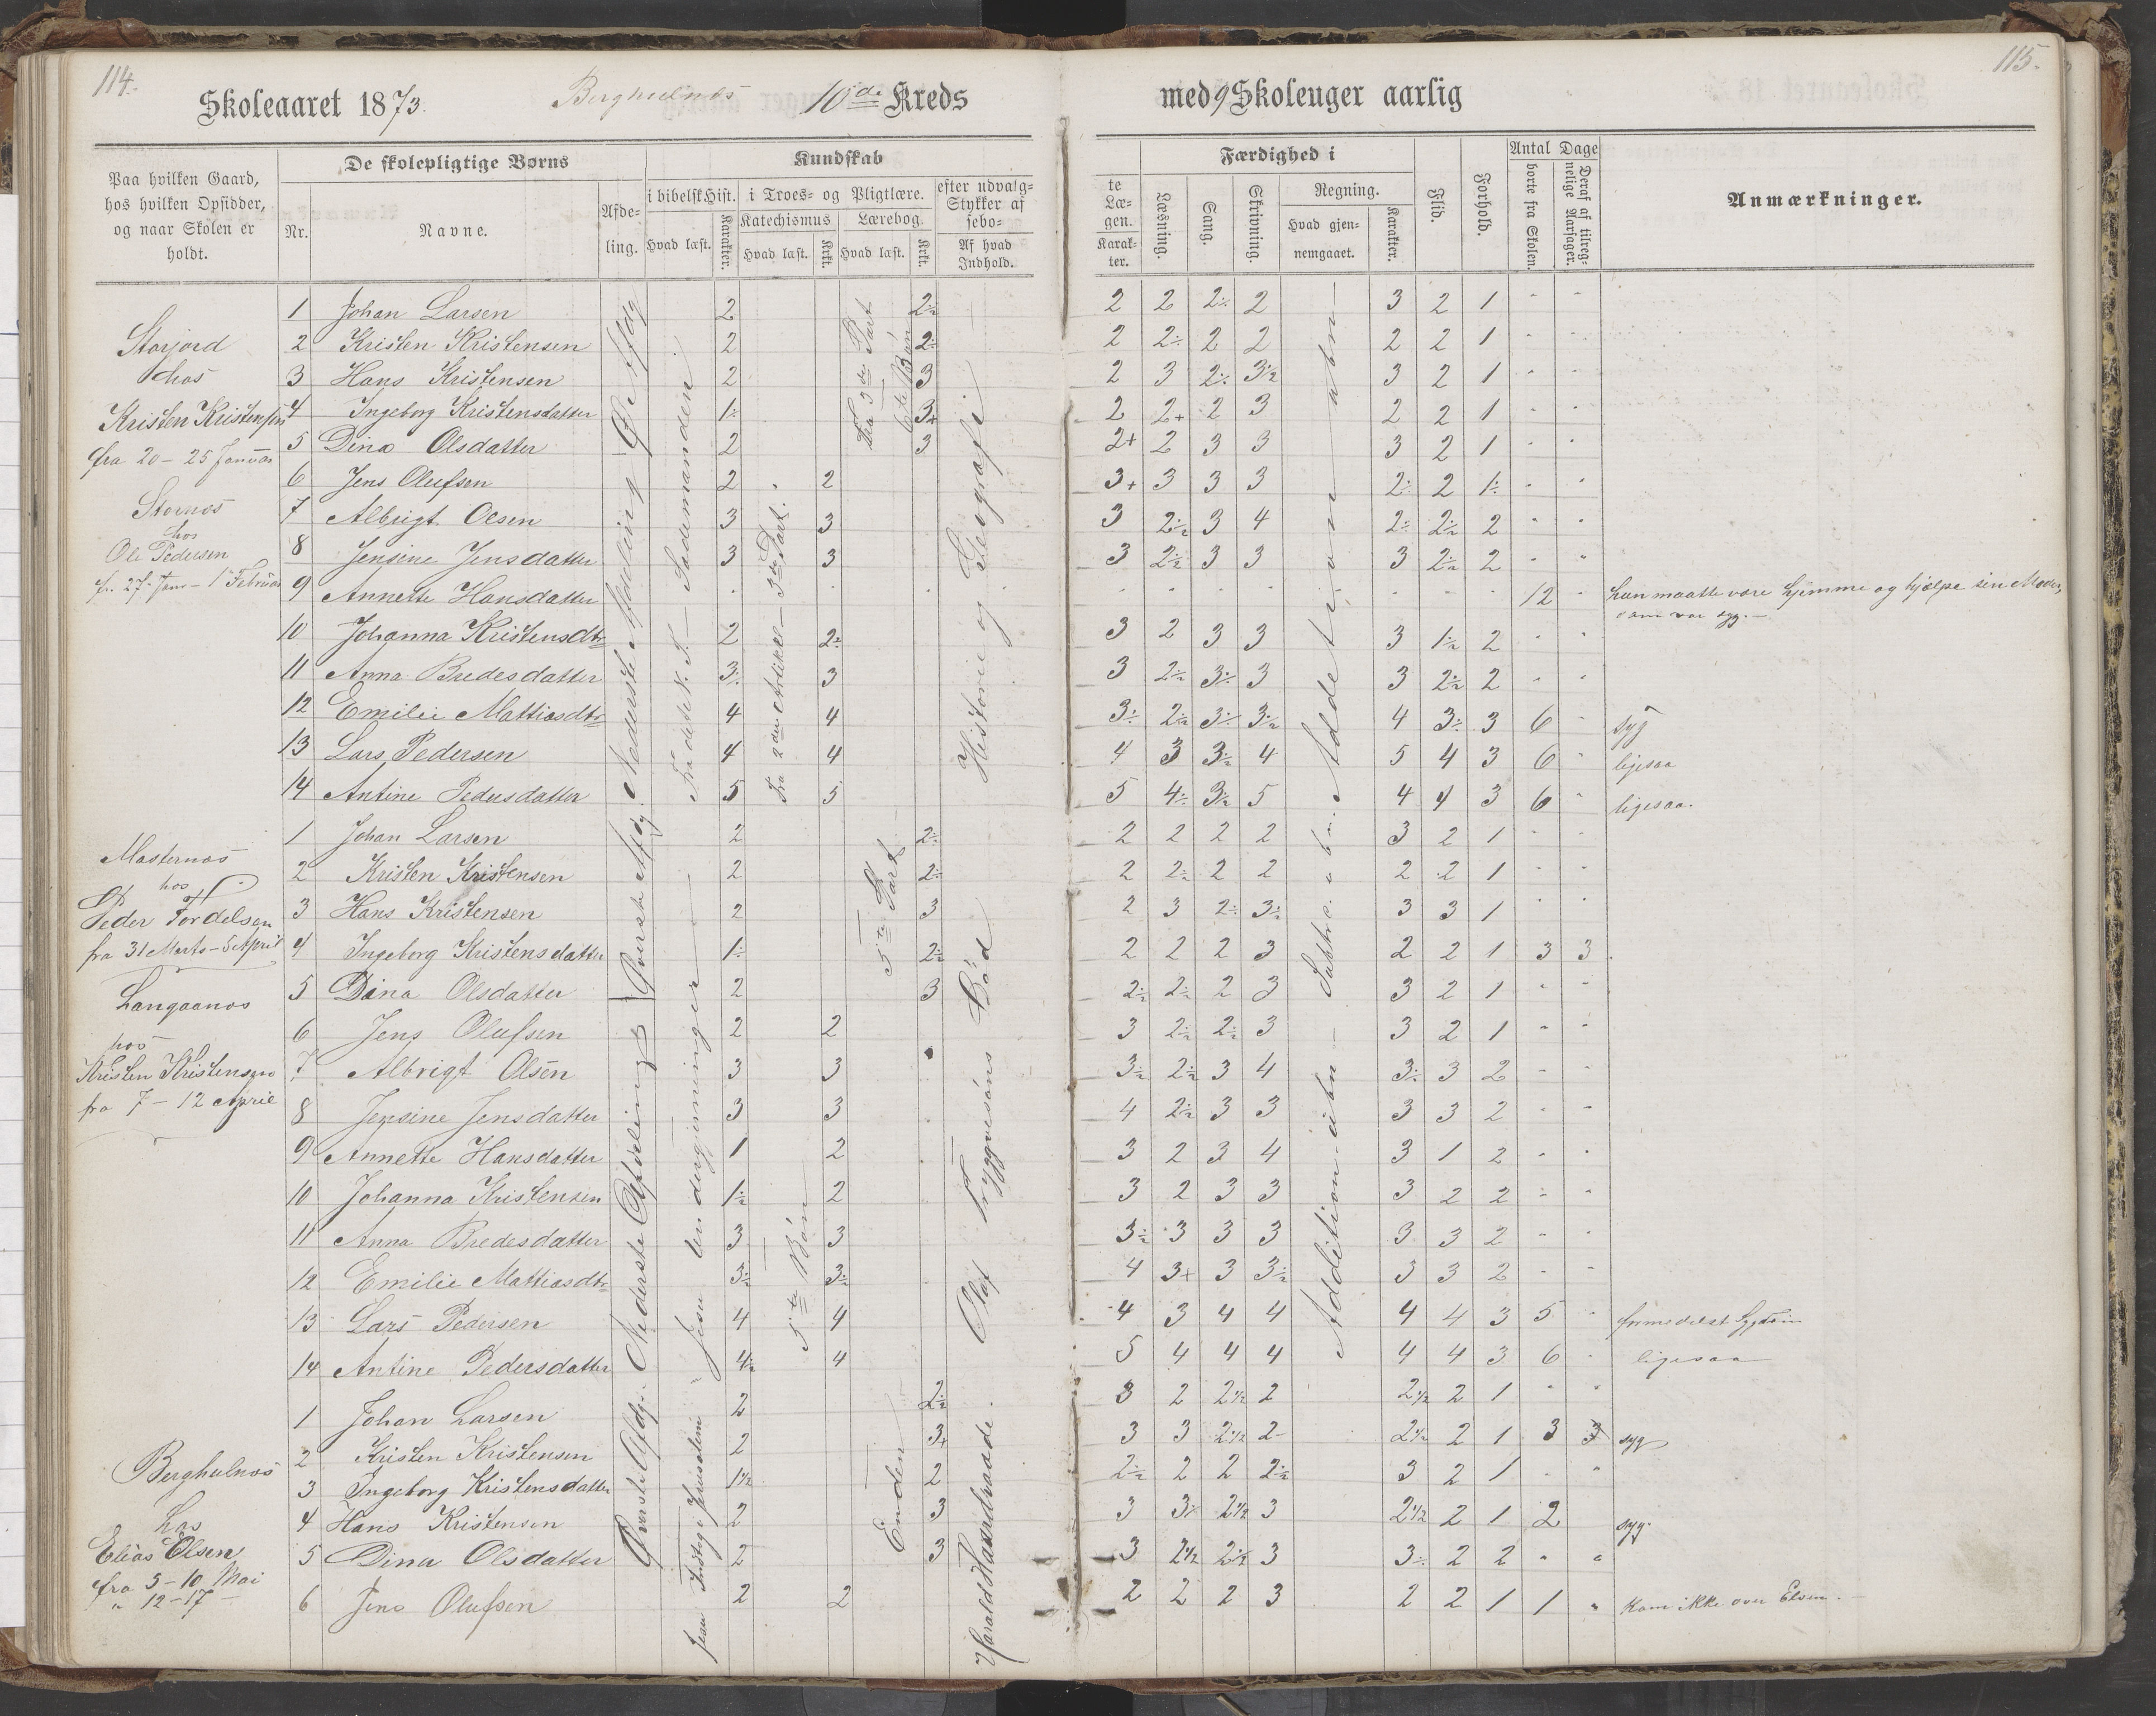 114.
Skoleaaret 1873.
Berghulnes
10de Kreds
Paa hvilken Gaard, hos hvilken Opsidder, og naar Skolen er holdt.
De skolepligtige Børns
Nr.
Navne.
Afdeling.
Kundskab
i bibelsk Hist.
Hvad læst.
Karakter.
i Troes- og Pligtlære.
Katechismus
Hvad læst.
Krkt.
Lærebog.
Hvad læst.
Krkt.
efter udvalg=
Stykker af
sebo=
Af hvad Indhold.
Storjord
hos
Kristen Kristensen
fra 20 - 25 Januar
Stornes
hos
Ole Pedersen
fr. 27 Jan - 1 Februar
1 Johan Larsen 2 2÷
2 Kristen Kristensen 2 2÷
3 Hans Kristensen 2 3
4 Ingeborg Kristensdatter 1÷ 3+
5 Dina Olsdatter 2 3
6 Jens Olufsen 2 2
7 Albrigt Olsen 3 3
8 Jensine Jensdatter 3 3
9 Annette Hansdatter
10 Johanna Kristensdtr 2 2÷
11 Anna Bredesdatter 3÷ 3
12 Emilie Mattiasdtr 4 4
13 Lars Pedersen 4 4
14 Antine Pedersdatter 5 5
Øv. Afdg
Nederste Afdeling
Fra det N. T. - Sædemanden
Fra 2den Artikel - 3die Part.
Fra 3die Part
6te Bøn
Historie og Geografi
Masternes
hos
Peder Tordelsen
fra 31 Marts - 5 April
Langaanes
hos
Kristen Kristensen
fra 7 - 12 April
1 Johan Larsen 2 2÷
2 Kristen Kristensen 2 2÷
3 Hans Kristensen 2 3
4 Ingeborg Kristensdatter 1÷ 2÷
5 Dina Olsdatter 2 3
6 Jens Olufsen 2 2
7 Albrigt Olsen 3 3
8 Jensine Jensdatter 3 3
9 Annette Hansdatter 1 2
10 Johanna Kristensen 1÷ 2
11 Anna Bredesdatter 3 3
12 Emilie Mattiasdtr 3÷ 3÷
13 Lars Pedersen 4 4
14 Antine Pedersdatter 4÷ 4
Øverste Afdg
Nederste Afdeling
Jesu undergjerninger
5te Bøn
5te Part
Olaf Tryggvesøns Død
Berghulnes
hos
Elias Olsen
fra 5 - 10 Mai
" 12 - 17 -
1 Johan Larsen 2 2÷
2 Kristen Kristensen 2 3+
3 Ingeborg Kristensdatter 1½ 2
4 Hans Kristensen 2 3
5 Dina Olsdatter 2 3
6 Jens Olufsen 2 2
Øverste Afdg.
Jesu Indtog i Jerusalem
Enden
Harald Haardraade.
115.
med 9 Skoleuger aarlig
te Læ-
gen.
Karakter.
Færdighed i
Læsning.
Sang.
Skrivning.
Regning.
Hvad gjennemgaaet.
Karakter.
Flid.
Forhold.
Antal Dage
borte fra Skolen.
Deraf af tilregnelige Aarsager.
Anmærkninger.
2 2 2÷ 2 3 2 1 - -
2 2÷ 2 2 2 2 1 - -
2 3 2÷ 3÷ 3 2 1 - -
2 2+ 2 3 2 2 1 - -
2+ 2 3 3 3 2 1 - -
3+ 3 3 3 2÷ 2 1÷ - -
3 2÷ 3 4 2÷ 2÷ 2 - -
3 2÷ 3 3 3 2÷ 2 - -
12 - hun maatte være hjemme og hjælpe sin Moder,
som var syg. -
3 2 3 3 3 1÷ 2 - -
3 2÷ 3÷ 3 3 2÷ 2 - -
3÷ 2÷ 3÷ 3÷ 4 3÷ 3 6 - syg
4 3 3÷ 4 5 4 3 6 - ligesaa
5 4÷ 3÷ 5 4 4 3 6 - ligesaa.
2 2 2 2 3 2 1 - -
2 2÷ 2 2 2 2 1 - -
2 3 2÷ 3÷ 3 3 1 - -
2 2 2 3 2 2 1 3 3
2÷ 2÷ 2 3 3 2 1 - -
3 2÷ 2÷ 3 3 2 1 - -
3÷ 2÷ 3 4 3÷ 3 2 - -
4 2÷ 3 3 3 3 2 - -
3 2 3 4 3 1 2 - -
3 2 3 3 3 2 2 - -
3÷ 3 3 3 3 3 2 - -
4 3+ 3 3÷ 3 3 2 - -
4 3 4 4 4 4 3 5 - formedelst Sygdom
5 4 4 4 4 4 3 6 - ligesaa
3 2 2½ 2 2½ 2 1 - -
3 3 2½ 2- 2½ 2 1 3 3 syg
2÷ 2 2 2÷ 3 2 1 - -
3 3÷ 2½ 3 2½ 2 1 2 syg.
3 2½ 2½ 3 3÷ 2 2 - -
2 2 2 3 2 2 1 1 " Kom ikke over Elven. -